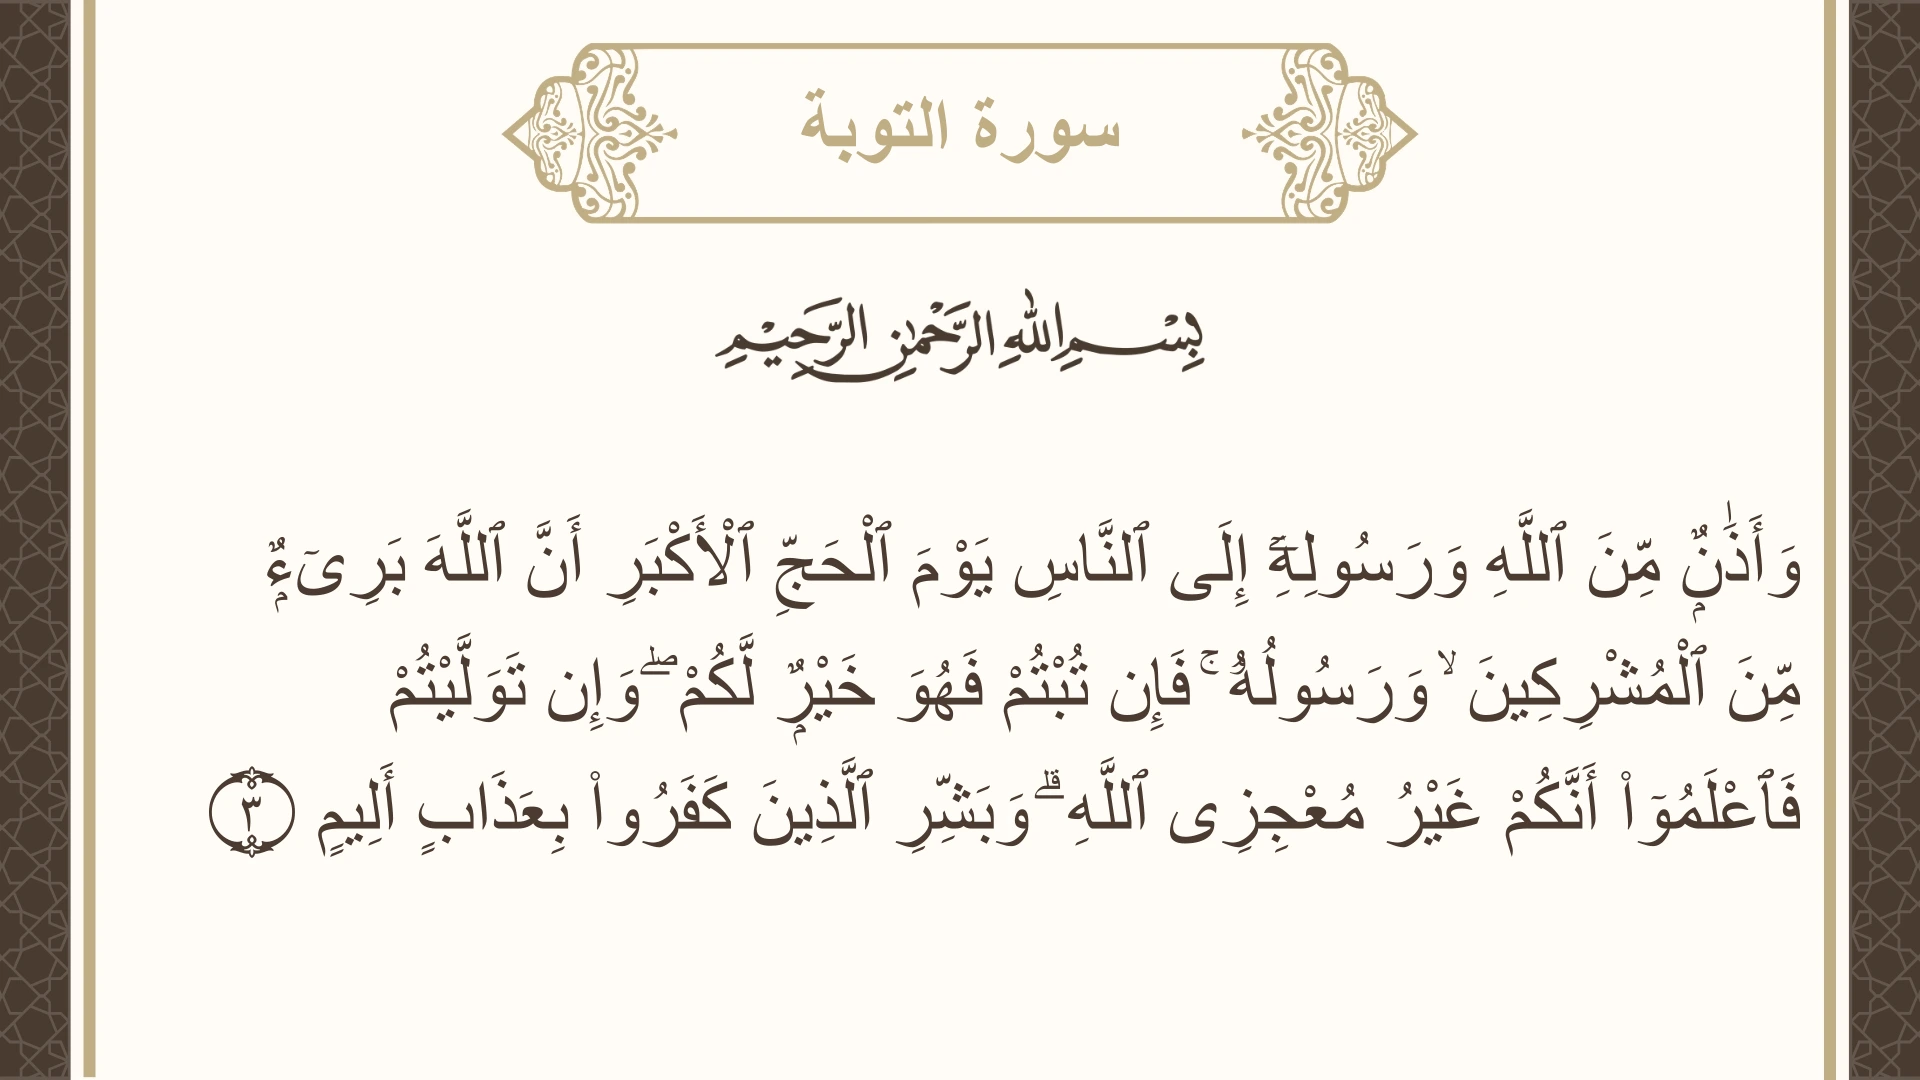 سورة التوبة
بِسْمِ اللهِ الرَّحْمٰنِ الرَّحِيْمِ
وَأَذَٰنٌۭ مِّنَ ٱللَّهِ وَرَسُولِهِۦٓ إِلَى ٱلنَّاسِ يَوْمَ ٱلْحَجِّ ٱلْأَكْبَرِ أَنَّ ٱللَّهَ بَرِىٓءٌۭ
مِّنَ ٱلْمُشْرِكِينَ ۙ وَرَسُولُهُۥ ۚ فَإِن تُبْتُمْ فَهُوَ خَيْرٌۭ لَّكُمْ ۖ وَإِن تَوَلَّيْتُمْ
فَٱعْلَمُوٓا۟ أَنَّكُمْ غَيْرُ مُعْجِزِى ٱللَّهِ ۗ وَبَشِّرِ ٱلَّذِينَ كَفَرُوا۟ بِعَذَابٍ أَلِيمٍ ٣